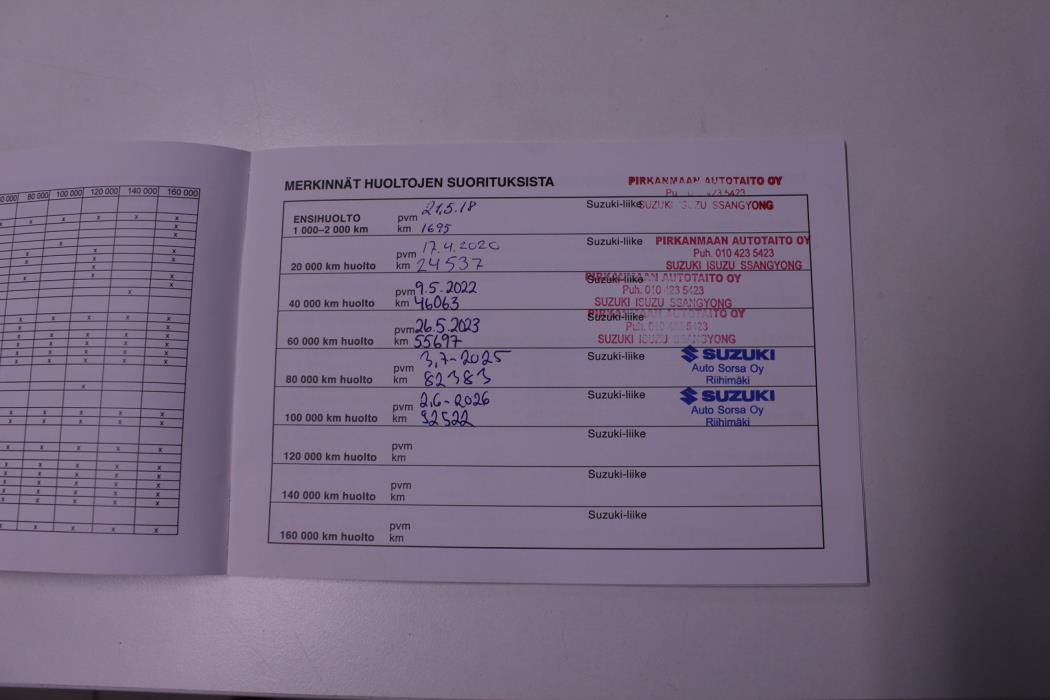 0 000 80 000 100 000 120 000 140 000 160 000
MERKINNÄT HUOLTOJEN SUORITUKSISTA
PIRKANMAAN AUTOTAITO OY
5423
ENSIHUOLTO pvm 21.5.18 Suzuki-liike SUZUKI ISUZU SSANGYONG
1 000–2 000 km km 1695
pvm 17.4.2020 Suzuki-liike PIRKANMAAN AUTOTAITO OY
Puh. 010 423 5423
20 000 km huolto km 24537 SUZUKI ISUZU SSANGYONG
Suzuki-liike PIRKANMAAN AUTOTAITO OY
pvm 9.5.2022 Puh. 010 423 5423
40 000 km huolto km 46063 SUZUKI ISUZU SSANGYONG
Suzuki-liike PIRKANMAAN AUTOTAITO OY
pvm 26.5.2023 Puh. 010 423 5423
60 000 km huolto km 55697 SUZUKI ISUZU SSANGYONG
pvm 3.7-2025 Suzuki-liike SUZUKI
Auto Sorsa Oy
80 000 km huolto km 82383 Riihimäki
pvm 2.6-2026 Suzuki-liike SUZUKI
Auto Sorsa Oy
100 000 km huolto km 92522 Riihimäki
pvm Suzuki-liike
120 000 km huolto km
pvm Suzuki-liike
140 000 km huolto km
pvm Suzuki-liike
160 000 km huolto km